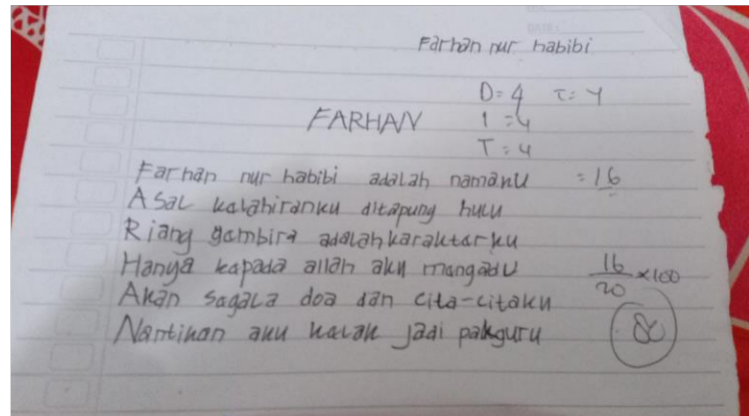 Farhan nur habibi
D = 4 T = 4
FARHAN
I = 4
T = 4
Farhan nur habibi adalah namaku
= 16
Asal kalahiranku ditapung hulu
Riang gambira adalah karaktarku
Hanya kapada allah aku mangadu
16/20 x 100
Akan sagala doa dan cita-citaku
Nantikan aku kalak jadi pakguru
80